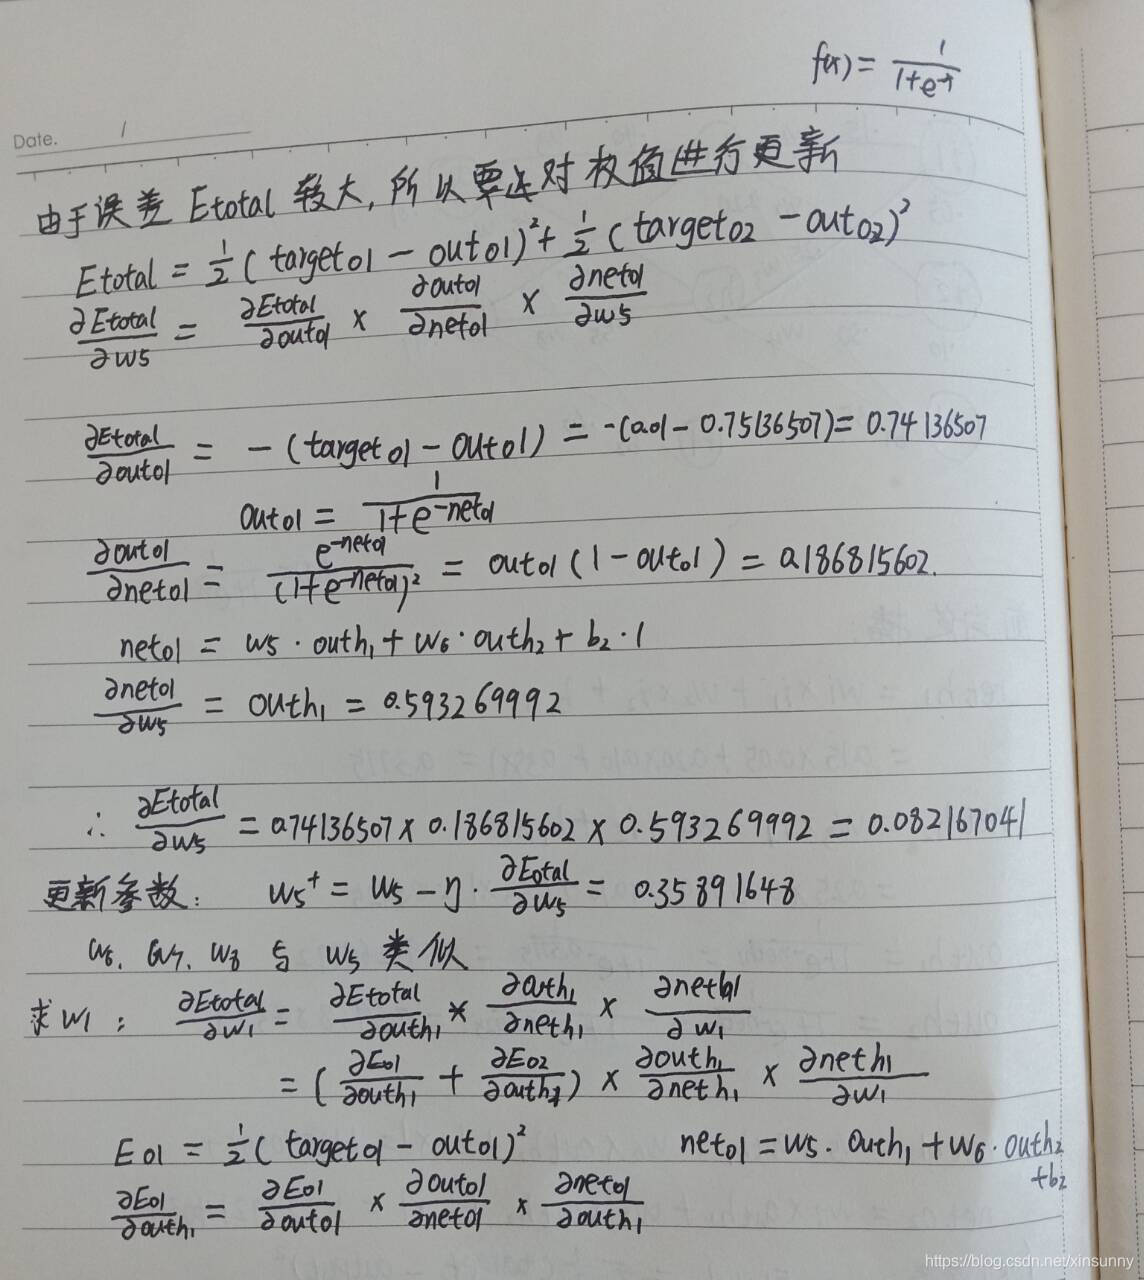 f(x) = 1/(1+e^-x)
Date. 1
由于误差 Etotal 较大, 所以要对权值进行更新
Etotal = 1/2 (targeto1 - outo1)² + 1/2 (targeto2 - outo2)²
∂Etotal/∂w5 = ∂Etotal/∂outo1 × ∂outo1/∂neto1 × ∂neto1/∂w5
∂Etotal/∂outo1 = -(targeto1 - outo1) = -(0.01 - 0.75136507) = 0.74136507
outo1 = 1/(1+e^-neto1)
∂outo1/∂neto1 = e^-neto1/(1+e^-neto1)² = outo1 (1 - outo1) = 0.186815602.
neto1 = w5 · outh1 + w6 · outh2 + b2 · 1
∂neto1/∂w5 = outh1 = 0.593269992
∴ ∂Etotal/∂w5 = 0.74136507 × 0.186815602 × 0.593269992 = 0.082167041
更新参数: w5⁺ = w5 - η · ∂Etotal/∂w5 = 0.35891648
w6. w7. w8 与 w5 类似
求 w1: ∂Etotal/∂w1 = ∂Etotal/∂outh1 * ∂outh1/∂neth1 × ∂neth1/∂w1
= (∂Eo1/∂outh1 + ∂Eo2/∂outh1) × ∂outh1/∂neth1 × ∂neth1/∂w1
Eo1 = 1/2 (targeto1 - outo1)² neto1 = w5 · outh1 + w6 · outh2
+b2
∂Eo1/∂outh1 = ∂Eo1/∂outo1 × ∂outo1/∂neto1 × ∂neto1/∂outh1
https://blog.csdn.net/xinsunny